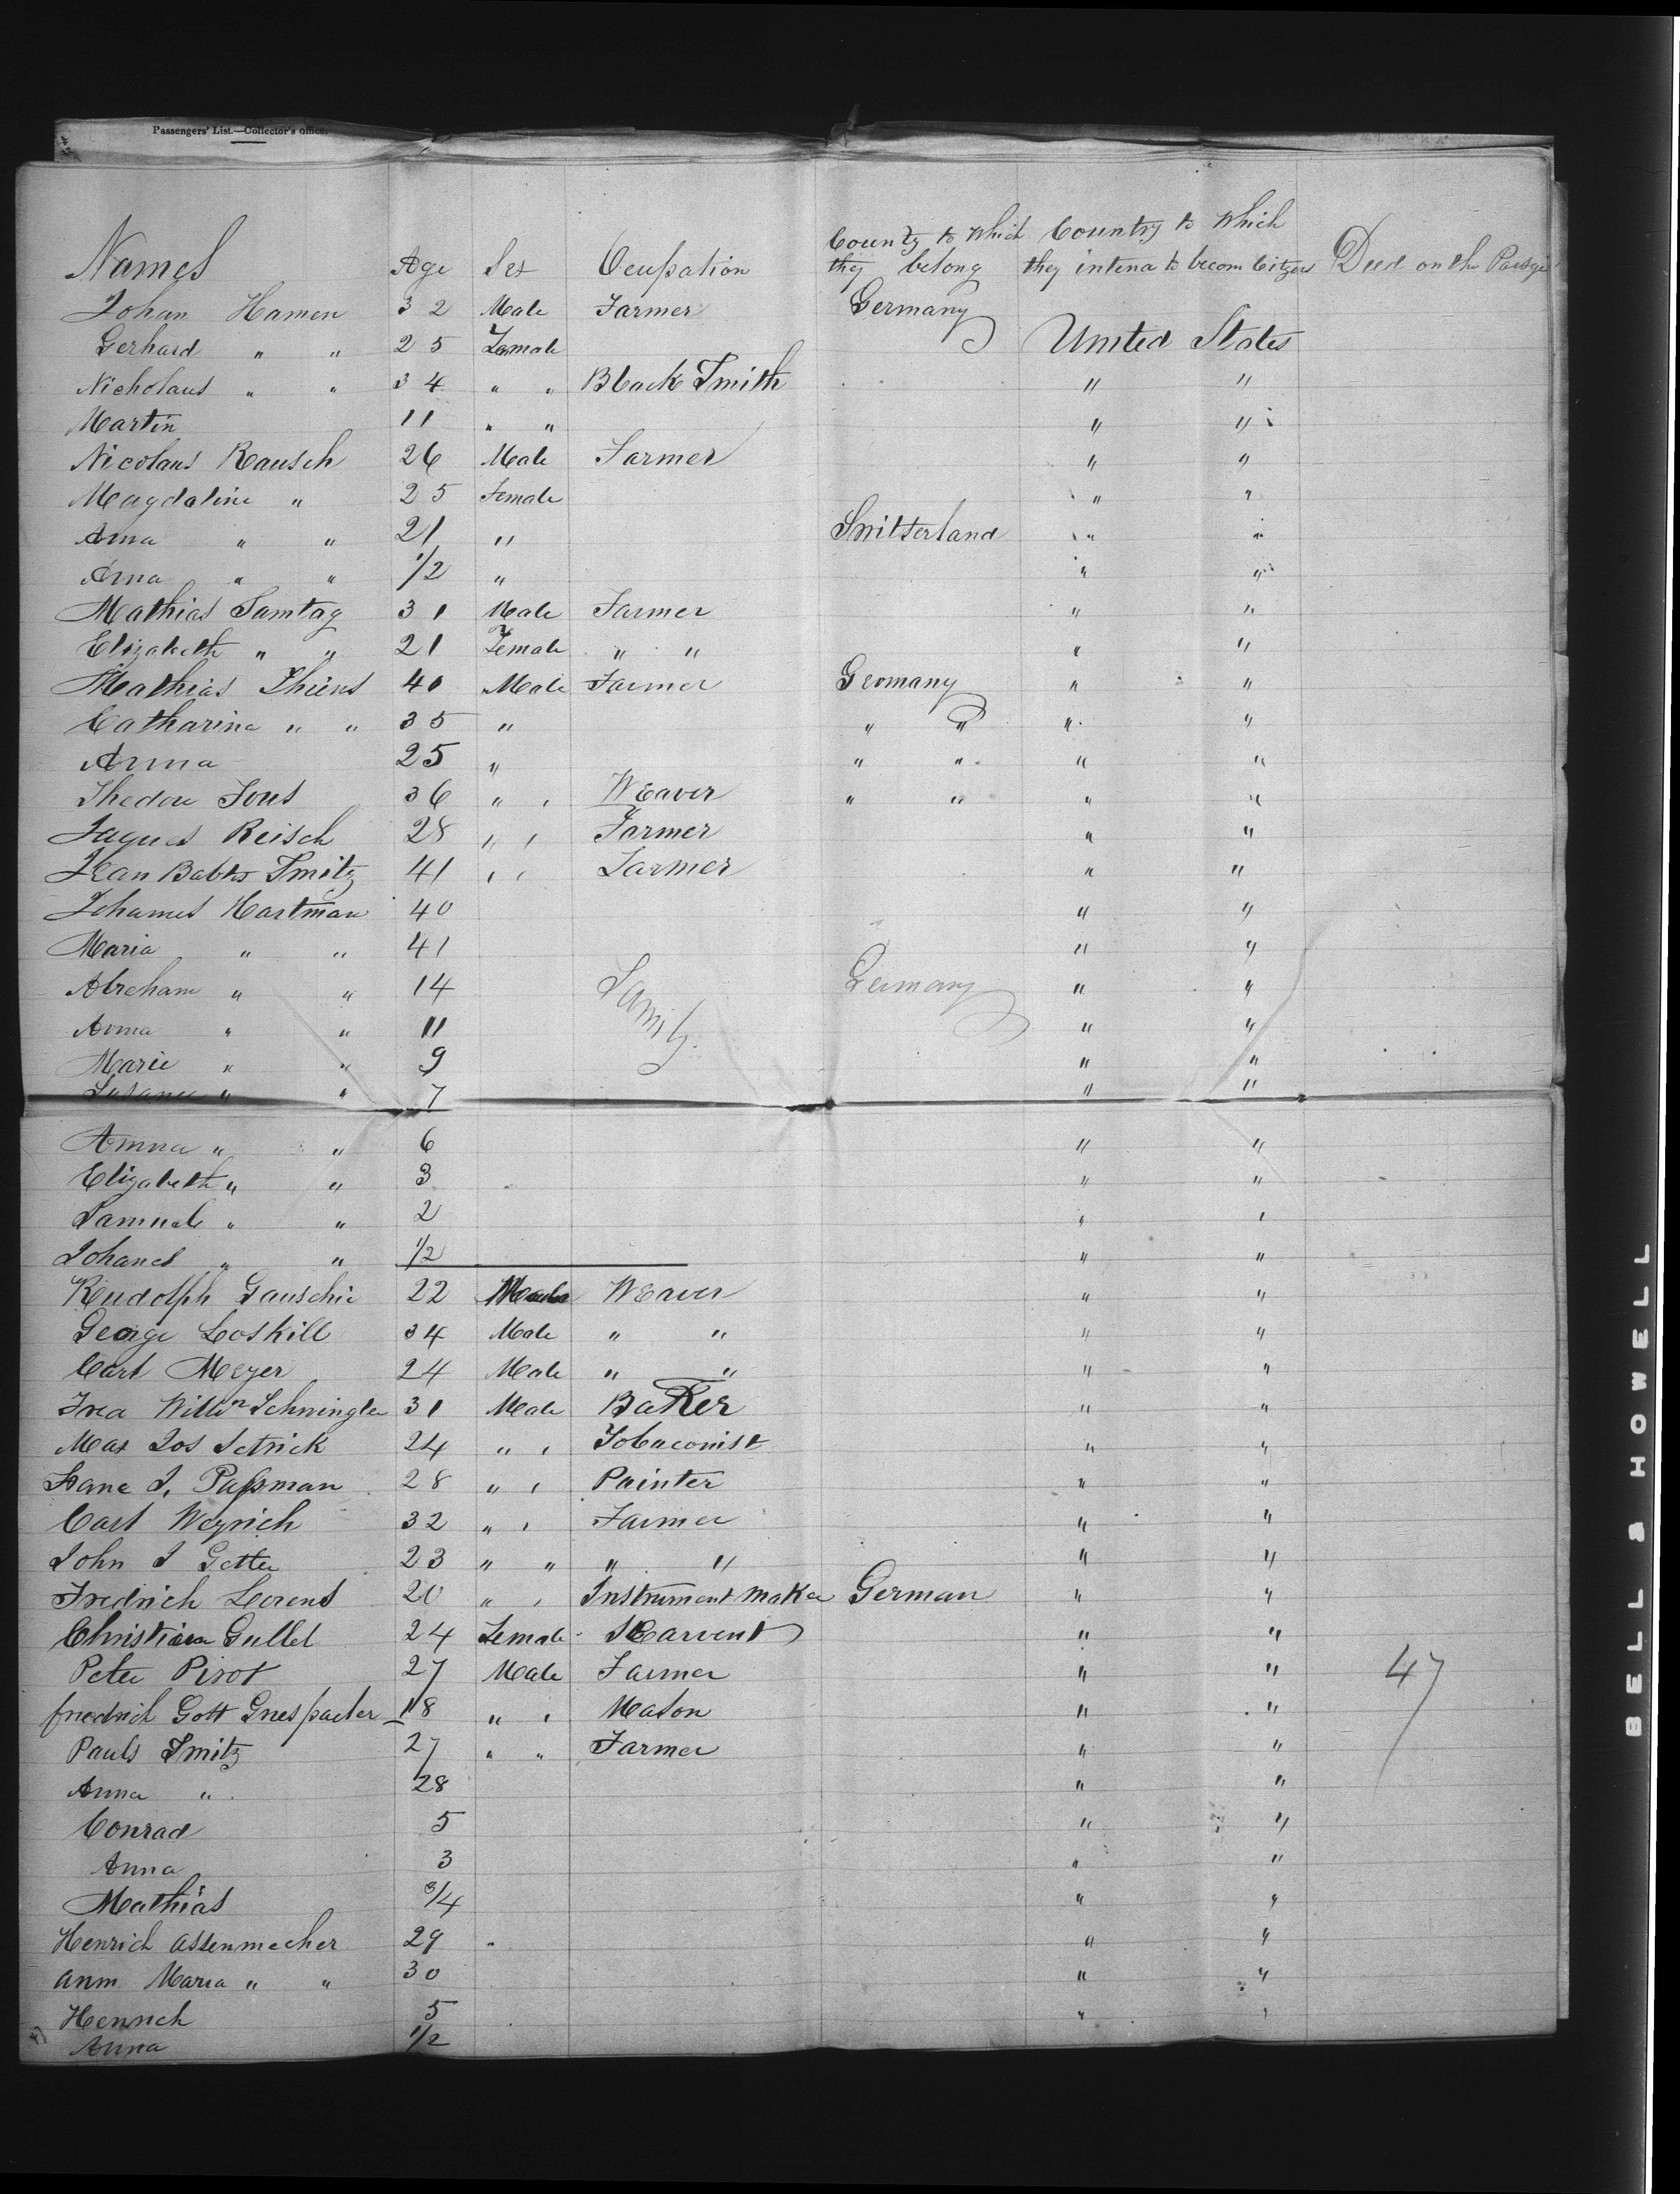 Passengers' List.—Collector's office.
Names Age Sex Ocupation County to which they belong Country to Which they intena to becom Citzens Died on the Passge
Johan Hamen 32 Male Farmer Germany
Gerhard " " 25 Female United States
Nicholaus " " 34 " " Black Smith " "
Martin 11 " " " "
Nicolaus Rausch 26 Male Farmer " "
Magdaline " 25 Female " "
Anna " " 21 " Switserland " "
Anna " " 1/2 " " "
Mathias Sumtag 31 Male Farmer " "
Elizabeth " " 21 Female " " " "
Mathias Thiens 40 Male Farmer Germany " "
Catharina " " 35 " " " " "
Anna 25 " " " " "
Thedore Fous 36 " " Weaver " " " "
Jaques Reisch 28 " " Farmer " "
Jean Babts Smitz 41 " " Farmer " "
Johames Hartman 40 " "
Maria " " 41 " "
Abreham " " 14 Family Germany " "
Anna " " 11 " "
Marie " " 9 " "
Susanne " " 7 " "
Amna " " 6 " "
Elizabeth " " 3 " "
Samuel " " 2 " "
Johanes " " 1/2 " "
Rudolph Gauschie 22 Male Weaver " "
George Loskill 34 Male " " " "
Carl Meyer 24 Male " " " "
Fred Willm Schwingle 31 Male Baker " "
Max Jos Setrick 24 " " Tobaconist " "
J. Passman 28 " " Painter " "
Carl Weyrich 32 " " Farmer " "
John J Getter 23 " " " " " "
Fredrich Lorens 20 " " Instrument maker German " "
Christian Gullet 24 Female Searvent " "
Peter Pirot 27 Male Farmer " " 47
friedrich Gott Griespacter 18 " " Mason " "
Pauls Smitz 27 " " Farmer " "
Anna " 28 " "
Conrad 5 " "
Anna 3 " "
Mathias 3/4 " "
Henrich Assenmecher 29 " " "
Anm Maria " " 30 " "
Henrich 5 " "
Anna 1/2
BELL & HOWELL